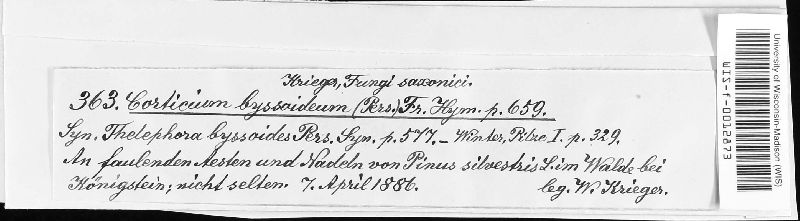 Krieger, Fungi saxonici.
363. Corticium byssoideum (Pers.) Fr. Hym. p. 659.
Syn. Thelephora byssoides Pers. Syn. p. 577. – Winter, Pilze I. p. 329.
An faulenden Aesten und Nadeln von Pinus silvestris L. im Walde bei
Königstein; nicht selten. 7. April 1886. leg. W. Krieger.
University of Wisconsin-Madison (WIS)
WIS-f-0012873